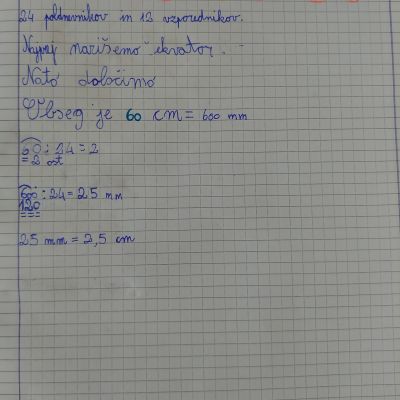 24 poldnevnikov in 12 vzporednikov.
Najprej narišemo ekvator.
Nato določimo
Obseg je 60 cm = 600 mm
60 : 24 = 2
= 2 ost
600 : 24 = 25 mm
120
25 mm = 2,5 cm